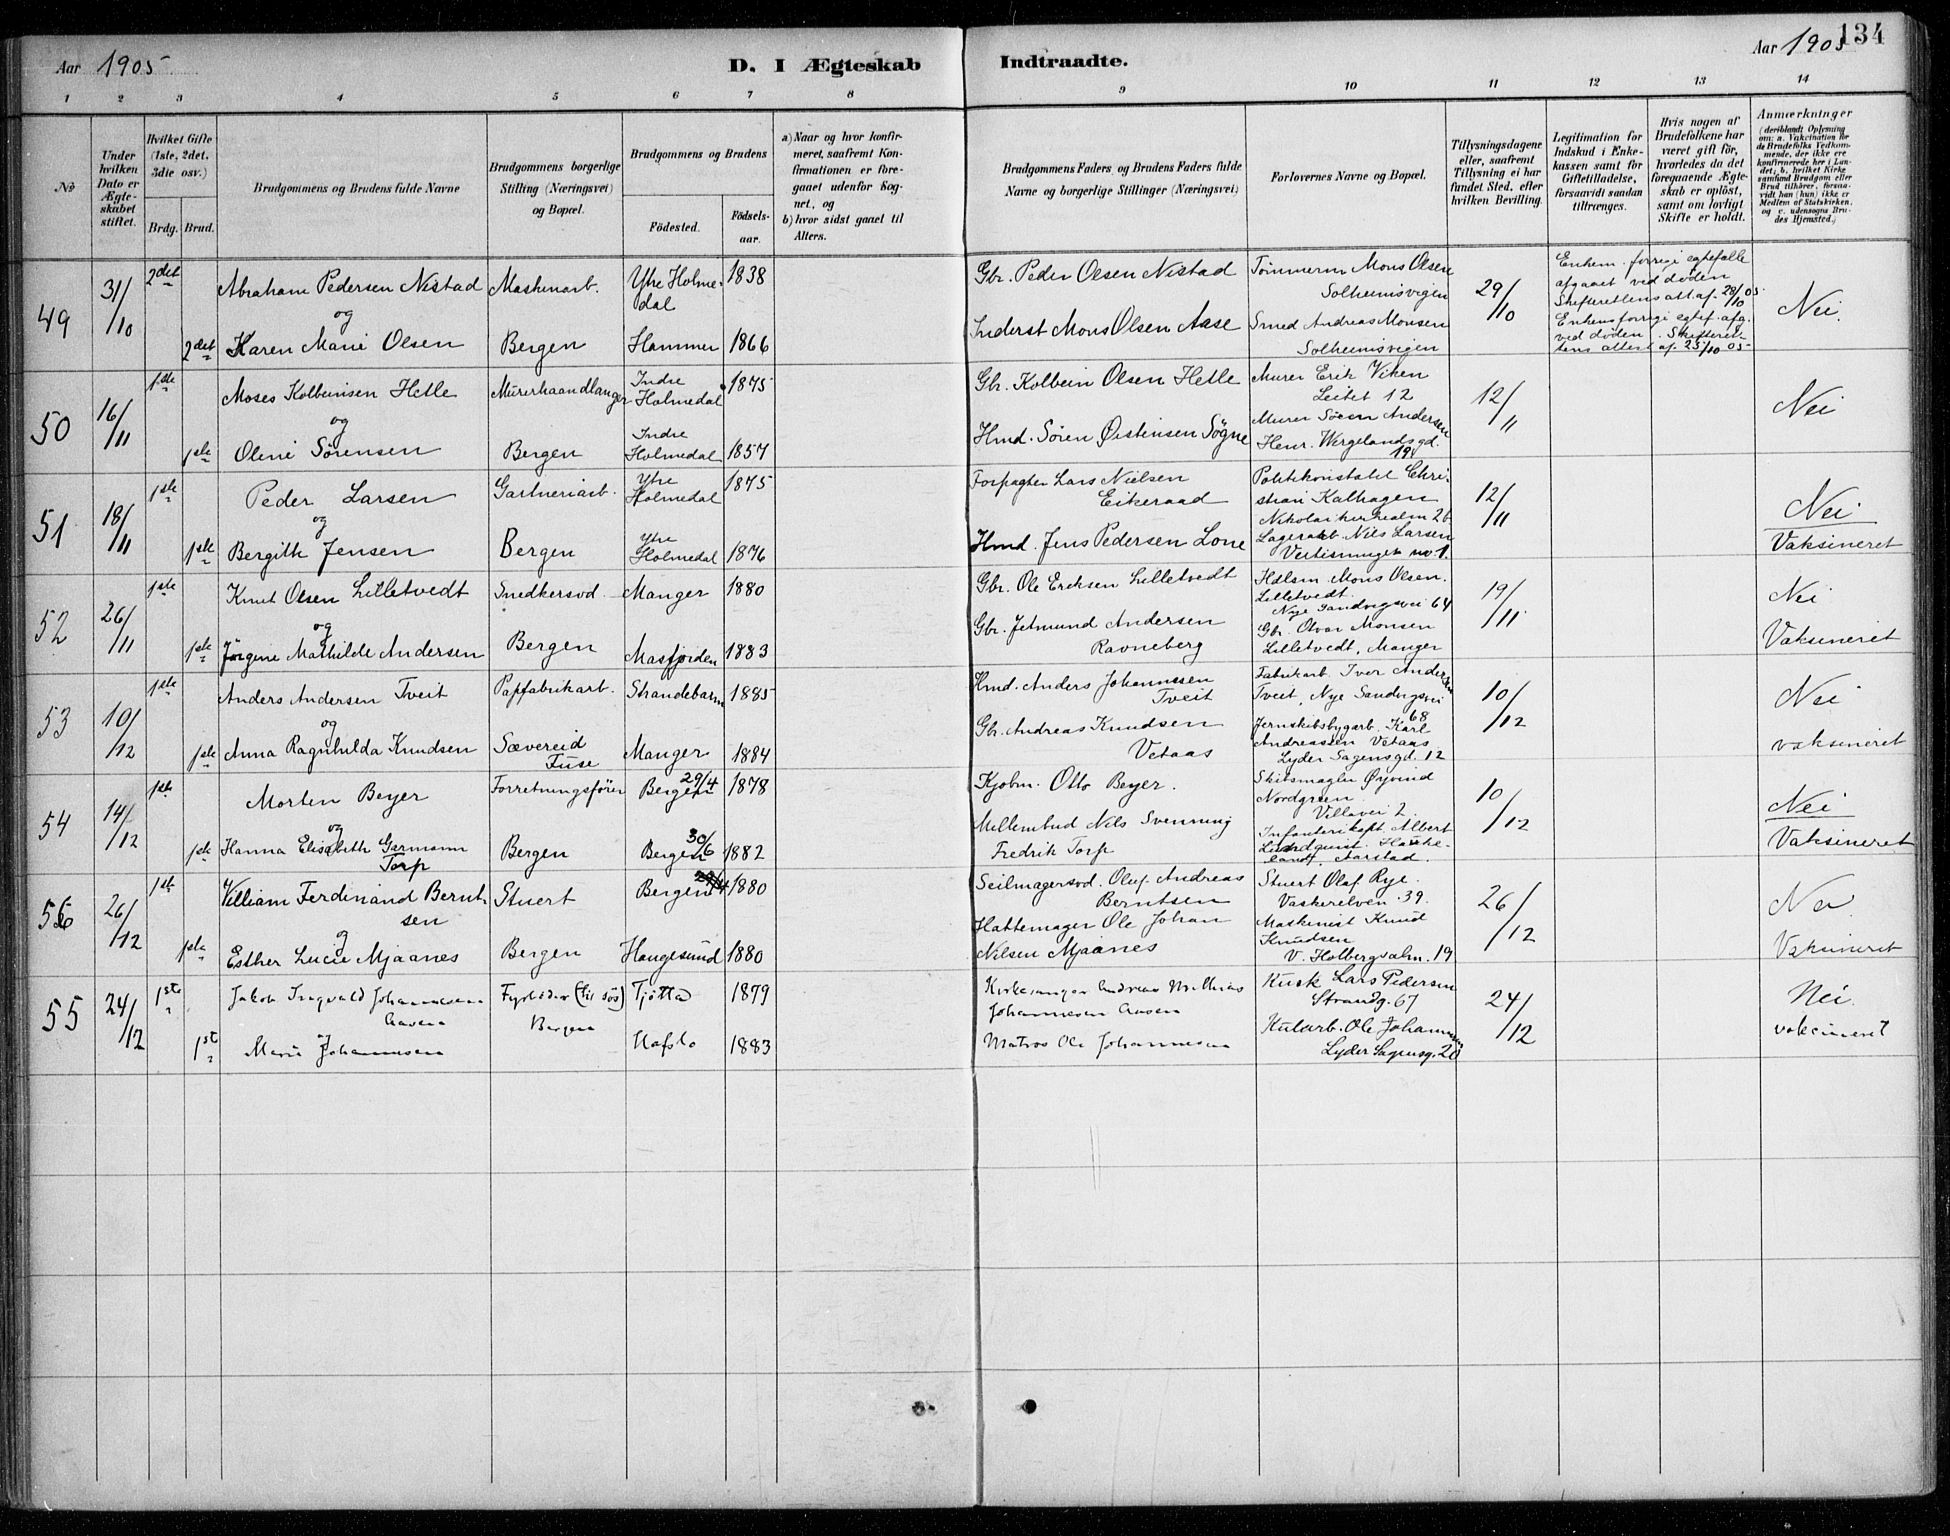 Aar 1905
D. I Ægteskab
Indtraadte.
Aar 1905
134
1 2 3 4 5 6 7 8
9 10 11 12 13 14
No
Under hvilken Dato er Ægteskabet stiftet.
Hvilket Gifte (1ste, 2det, 3die osv.)
Brdg. Brud.
Brudgommens og Brudens fulde Navne
Brudgommens borgerlige Stilling (Næringsvei) og Bopæl.
Brudgommens og Brudens
Födested.
Födselsaar.
a) Naar og hvor konfirmeret, saafremt Konfirmationen er foregaaet udenfor Sognet, og
b) hvor sidst gaaet til Alters.
Brudgommens Faders og Brudens Faders fulde Navne og borgerlige Stillinger (Næringsvei)
Forlovernes Navne og Bopæl.
Tillysningsdagene eller, saafremt Tillysning ei har fundet Sted, efter hvilken Bevilling.
Legitimation for Indskud i Enkekassen samt for Giftetilladelse, forsaavidt saadan tiltrænges.
Hvis nogen af Brudefolkene har været gift för, hvorledes da det foregaaende Ægteskab er oplöst, samt om lovligt Skifte er holdt.
Anmærkninger
(deriblandt Oplysning om: a. Vakcination for de Brudefolks Vedkommende, der ikke ere konfirmerede her i Landet; b. hvilket Kirkesamfund Brudgom eller Brud tilhörer, forsaavidt han (hun) ikke er Medlem af Statskirken, og c. udensogns Brudes Hjemsted.)
49 31/10 2det Abraham Pedersen Nestad Maskinarb. Ytre Holmedal 1838
og
2det Karen Marie Olsen Bergen Hammer 1866
Gbr. Peder Olsen Nestad Tømmerm Mons Olsen Solheimsvigen 29/10
Inderst Mons Olsen Aase Smed Andreas Monsen Solheimsvigen
Enkem. forrige egtefælle
afgaaet ved døden
Skifterettens att. af 28/10 05
Enkens forrige egtef. afg.
ved døden. Skifteret-
tens attest af 25/10 05
Nei.
50 16/11 1ste Moses Kolbeinsen Hetle Murerhaandlanger Indre Holmedal 1875
og
1ste Oline Sørensen Bergen Indre Holmedal 1857
Gbr. Kolbein Olsen Hetle Murer Erik Viken Leitet 12 12/11 Nei
Hmd. Sören Øistensen Sögne Murer Søren Andersen Henr. Wergelandsgd. 19
51 18/11 1ste Peder Larsen Gartneriarb. Ytre Holmedal 1875
og
1ste Bergith Jensen Bergen Ytre Holmedal 1876
Forpagter Lars Nielsen Eikeraad Politikonstabel Christian Kalhagen Nikolaikirkealm 26 12/11 Nei
Hmd. Jens Pedersen Lone Lagerarb. Nils Larsen no 1. Vaksineret
52 26/11 1ste Knut Olsen Lilletvedt Snedkersvd. Manger 1880
og
1ste Jørgine Mathilde Andersen Bergen Masfjorden 1883
Gbr. Ole Eriksen Lilletvedt Hdlsm. Mons Olsen Lilletvedt. Nye Sandvigsvei 64 19/11 Nei
Gbr. Jetmund Andersen Ravneberg Gbr. Monsen Lilletvedt, Manger Vaksineret
53 10/12 1ste Anders Andersen Tveit Papfabrikarb. Strandebarm 1885
og
1ste Anna Ragnhilda Knudsen Sævereid Fuse Manger 1884
Hmd. Anders Johannessen Tveit Fabrikarb. Iver Andersen Tveit, Nye Sandvigsvei 68 10/12 Nei
Gbr. Andreas Knudsen Vetaas Jernskibsbygarb. Karl Andreassen Vetaas Lyder Sagensgd. 12 vaksineret
54 14/12 1ste Morten Beyer Forretningsfører Bergen 29/4 1878
og
1ste Hanna Elisabeth Garmann Torp Bergen Bergen 30/6 1882
Kjøbm. Otto Beyer. Skibsmægler Øyvind Nordgreen. Villavei 2. 10/12 Nei
Mellembud Nils Svenning Fredrik Torp Infanterikapt. Albert Lindquist. Haukeland, Aarstad. Vaksineret
56 26/12 1ste William Ferdinand Berntsen Stuert Bergen 29/4 1880
og
1ste Esther Lucie Mjaanes Bergen Haugesund 1880
Seilmagersvd. Oluf Andreas Berntsen Stuert Olaf Rye. Vaskerelven 39. 26/12 Nei
Hattemager Ole Johan Nilsen Mjaanes Maskinist Knud Knudsen V. Holbergsalm. 19 Vaksineret
55 24/12 1ste Jakob Ingvald Johannesen Aasen Fyrböder (til søs) Bergen Tjøtta 1879
1ste Marie Johannesen Hafslo 1883
Kirkesanger Andreas Mathias Johannesen Aasen Kusk Lars Pedersen Strandg. 67 24/12 Nei.
Matros Ole Johannesen Kularb. Ole Johannesen Lyder Sagensg. 20 vakcineret